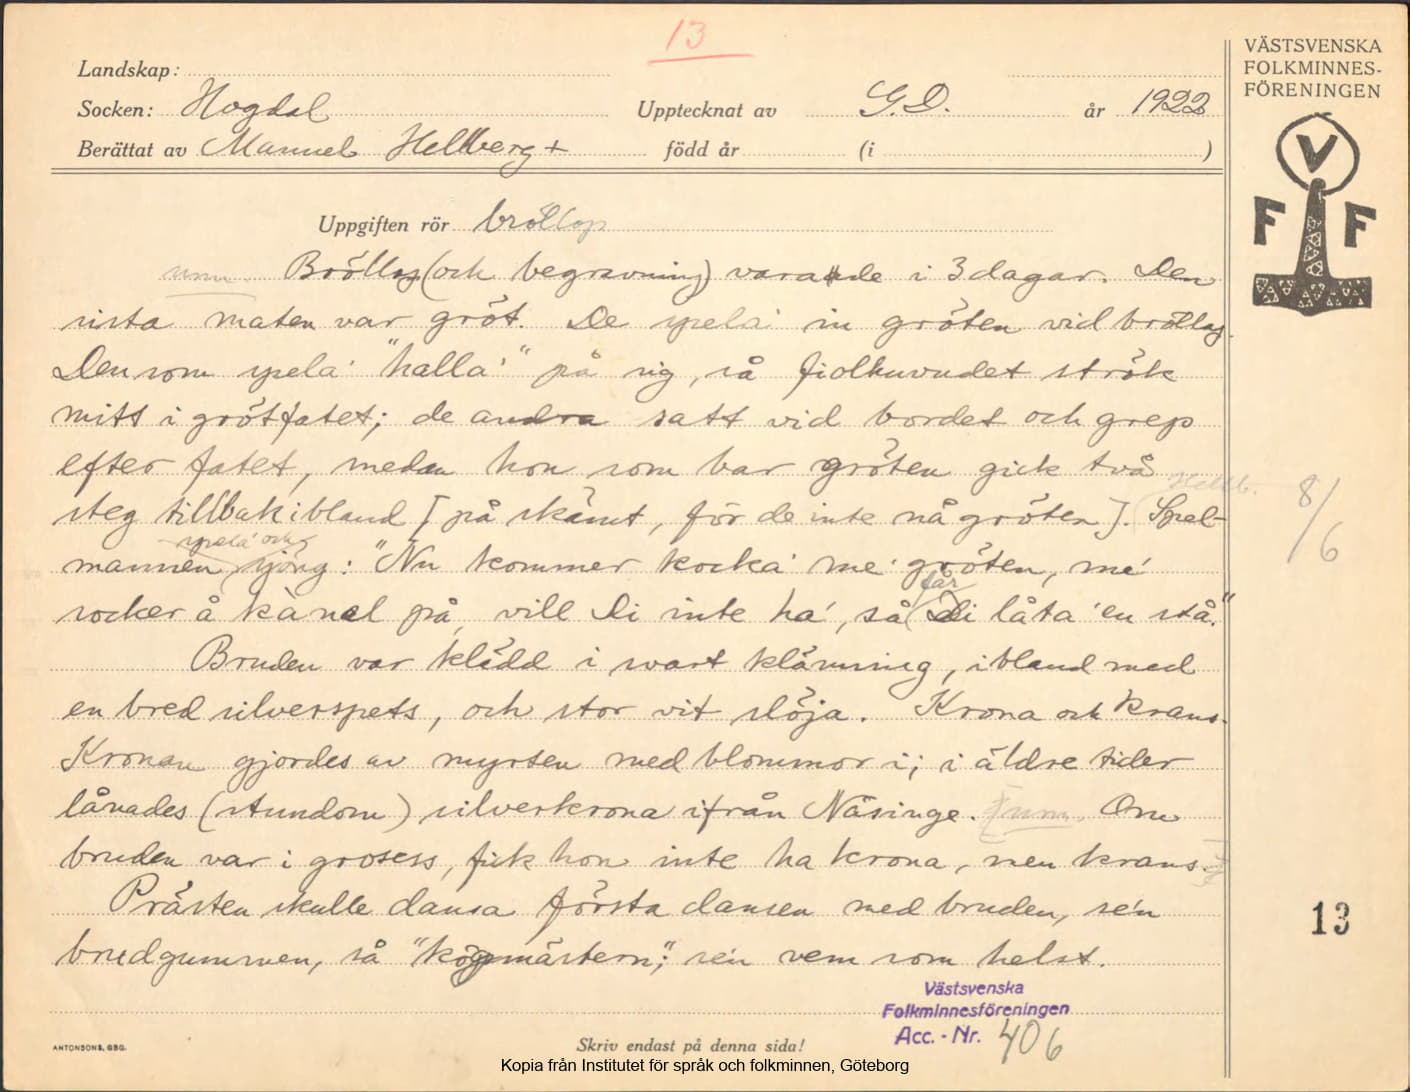 13
Landskap:
VÄSTSVENSKA
FOLKMINNES-
FÖRENINGEN
Socken: Hogdal Upptecknat av G.D. år 1922
Berättat av Manuel Hellberg + född år (i )
V
F F
Uppgiften rör bröllop
Bröllop (och begravning) varade i 3 dagar. Den
sista maten var gröt. De spela' in gröten vid bröllop.
Den som spela' "halla'" på sig, så fiolhuvudet strök
mitt i grötfatet; de andra satt vid bordet och grep
efter fatet, medan hon som bar gröten gick två
Hellb.
steg tillbaki bland [på skämt, för de inte nå gröten]. Spel-
spela' och
mannen sjöng: "Nu kommer kocka' me' gröten, me'
får
socker å kànel på, vill Di inte ha', så Di låta 'en stå."
Bruden var klädd i svart klänning, ibland med
en bred silverspets, och stor vit slöja. Krona och krans.
Kronan gjordes av myrten med blommor i; i äldre tider
lånades (stundom) silverkrona ifrån Näsinge. Om
bruden var i grosess, fick hon inte ha krona, men krans.
Prästen skulle dansa första dansen med bruden, se'n
brudgummen, så "kögemästern"; se'n vem som helst.
8/6
13
Västsvenska
Folkminnesföreningen
Acc. - Nr. 406
ANTONSONS, GBG.
Skriv endast på denna sida!
Kopia från Institutet för språk och folkminnen, Göteborg